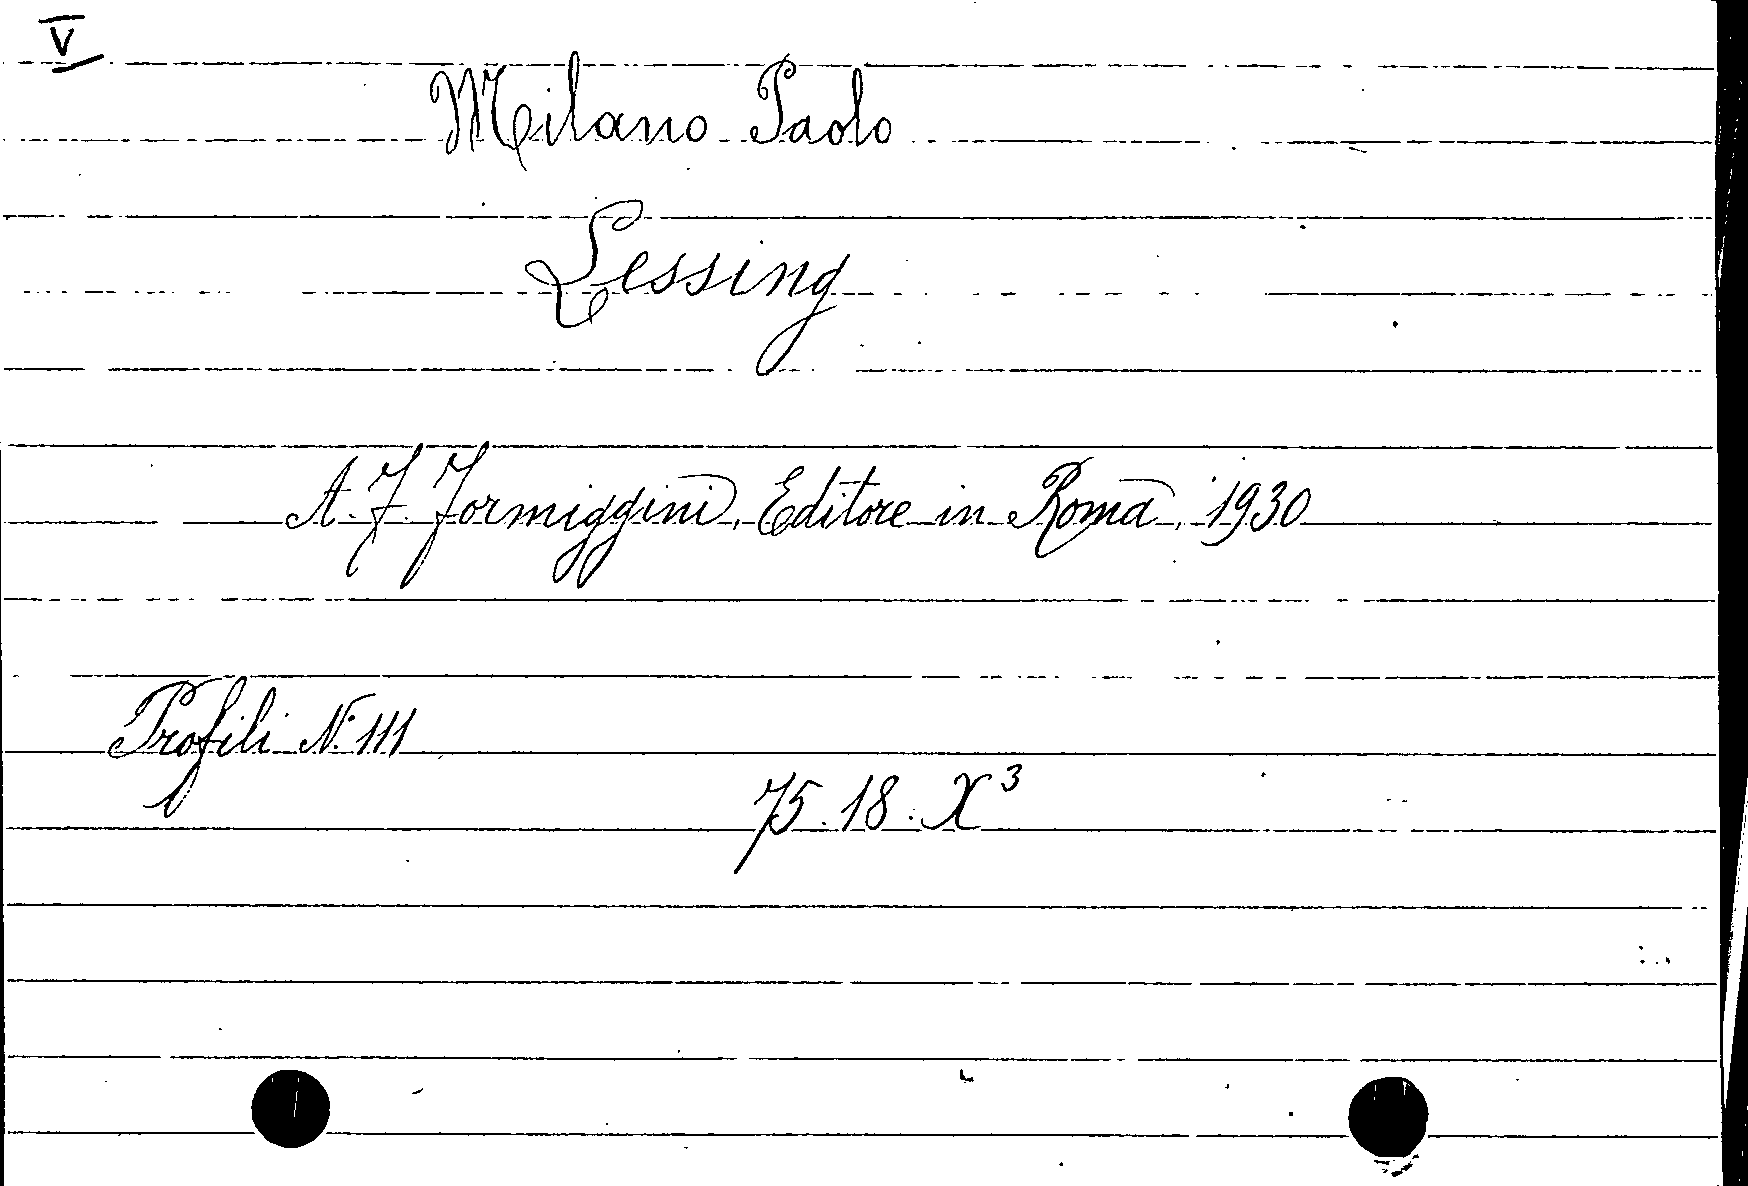 V
Milano Paolo
Lessing
A. F. Formiggini, Editore in Roma, 1930
Profili N. 111
75. 18. X³